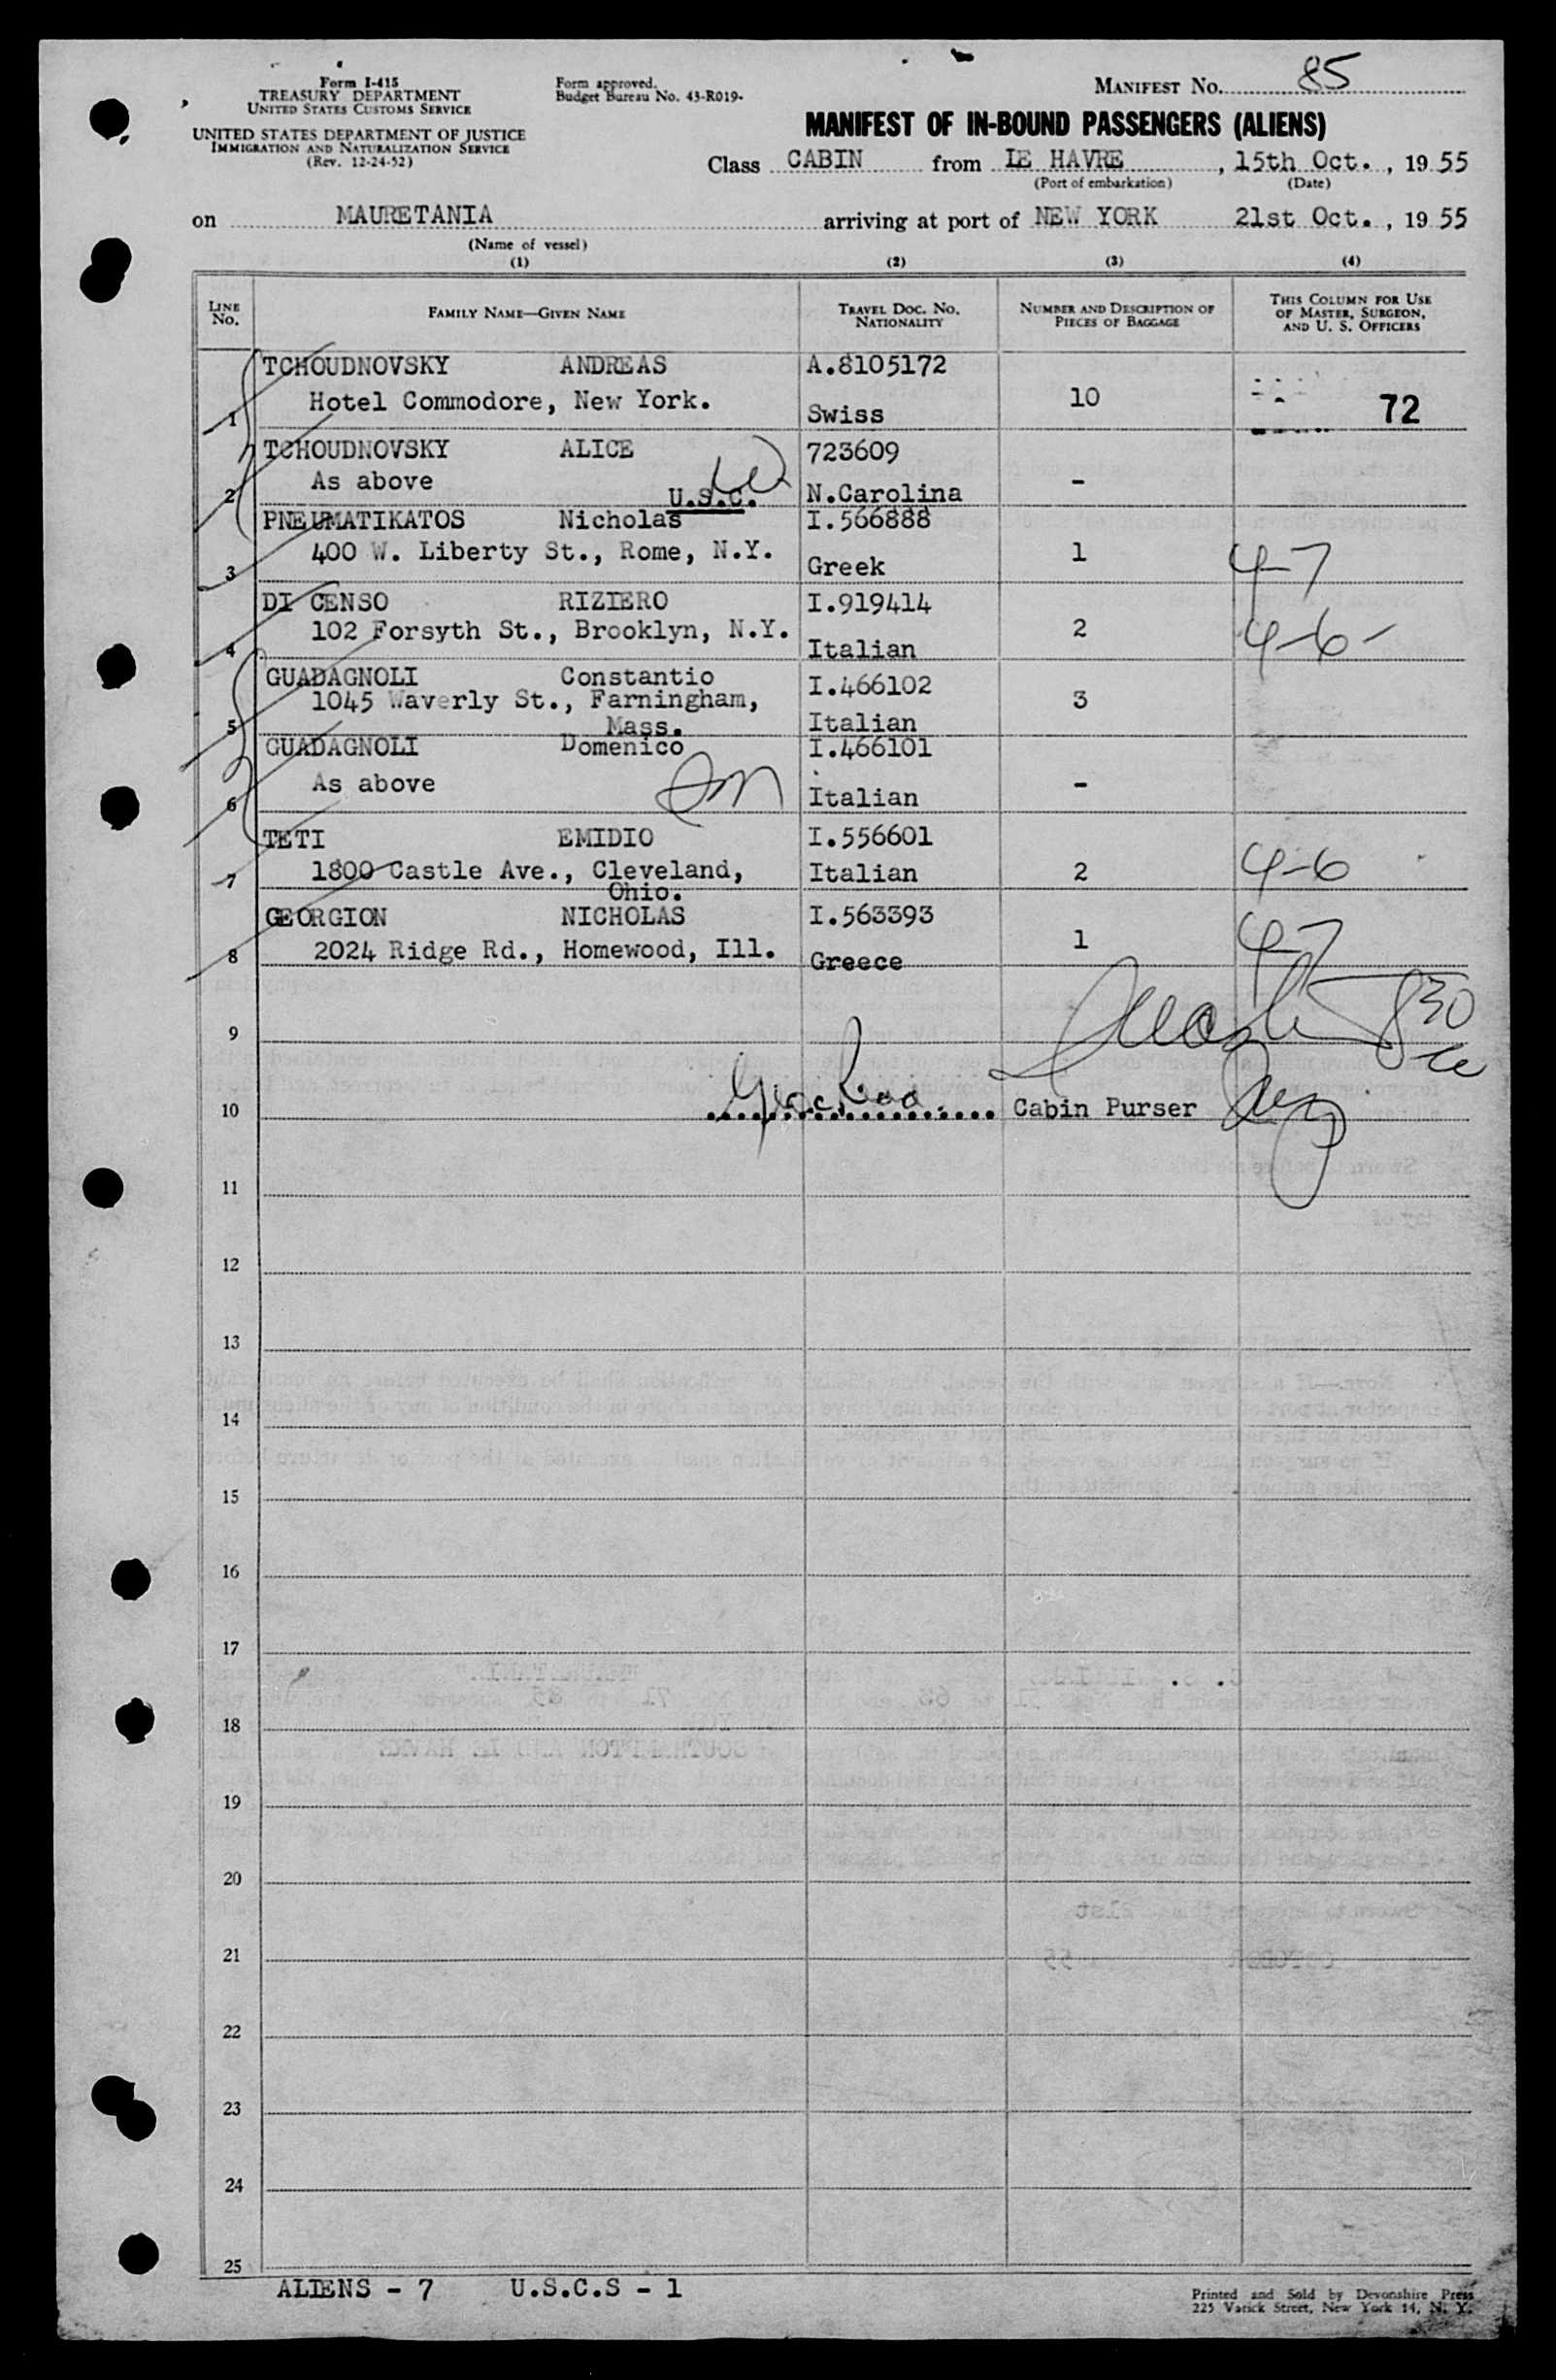 Form I-415
TREASURY DEPARTMENT
UNITED STATES CUSTOMS SERVICE
UNITED STATES DEPARTMENT OF JUSTICE
IMMIGRATION AND NATURALIZATION SERVICE
(Rev. 12-24-52)
Form approved.
Budget Bureau No. 43-R019-
MANIFEST No. 85
MANIFEST OF IN-BOUND PASSENGERS (ALIENS)
Class CABIN from LE HAVRE, 15th Oct., 19 55
(Port of embarkation) (Date)
on MAURETANIA arriving at port of NEW YORK 21st Oct., 19 55
(Name of vessel)
(1) (2) (3) (4)
LINE No. FAMILY NAME—GIVEN NAME TRAVEL DOC. No. NATIONALITY NUMBER AND DESCRIPTION OF PIECES OF BAGGAGE THIS COLUMN FOR USE OF MASTER, SURGEON, AND U. S. OFFICERS
TCHOUDNOVSKY ANDREAS A.8105172
1 Hotel Commodore, New York. Swiss 10 72
TCHOUDNOVSKY ALICE 723609
2 As above U.S.C. N.Carolina -
PNEUMATIKATOS Nicholas I.566888
3 400 W. Liberty St., Rome, N.Y. Greek 1 4-7
DI CENSO RIZIERO I.919414
4 102 Forsyth St., Brooklyn, N.Y. Italian 2 4-6-
GUADAGNOLI Constantio I.466102
5 1045 Waverly St., Farningham, Mass. Italian 3
GUADAGNOLI Domenico I.466101
6 As above Italian -
TETI EMIDIO I.556601
7 1800 Castle Ave., Cleveland, Ohio. Italian 2 4-6
GEORGION NICHOLAS I.563393
8 2024 Ridge Rd., Homewood, Ill. Greece 1 4-7
830
9
10 Cabin Purser
11
12
13
14
15
16
17
18
19
20
21
22
23
24
25
ALIENS - 7 U.S.C.S - 1
Printed and Sold by Devonshire Press
225 Varick Street, New York 14, N. Y.